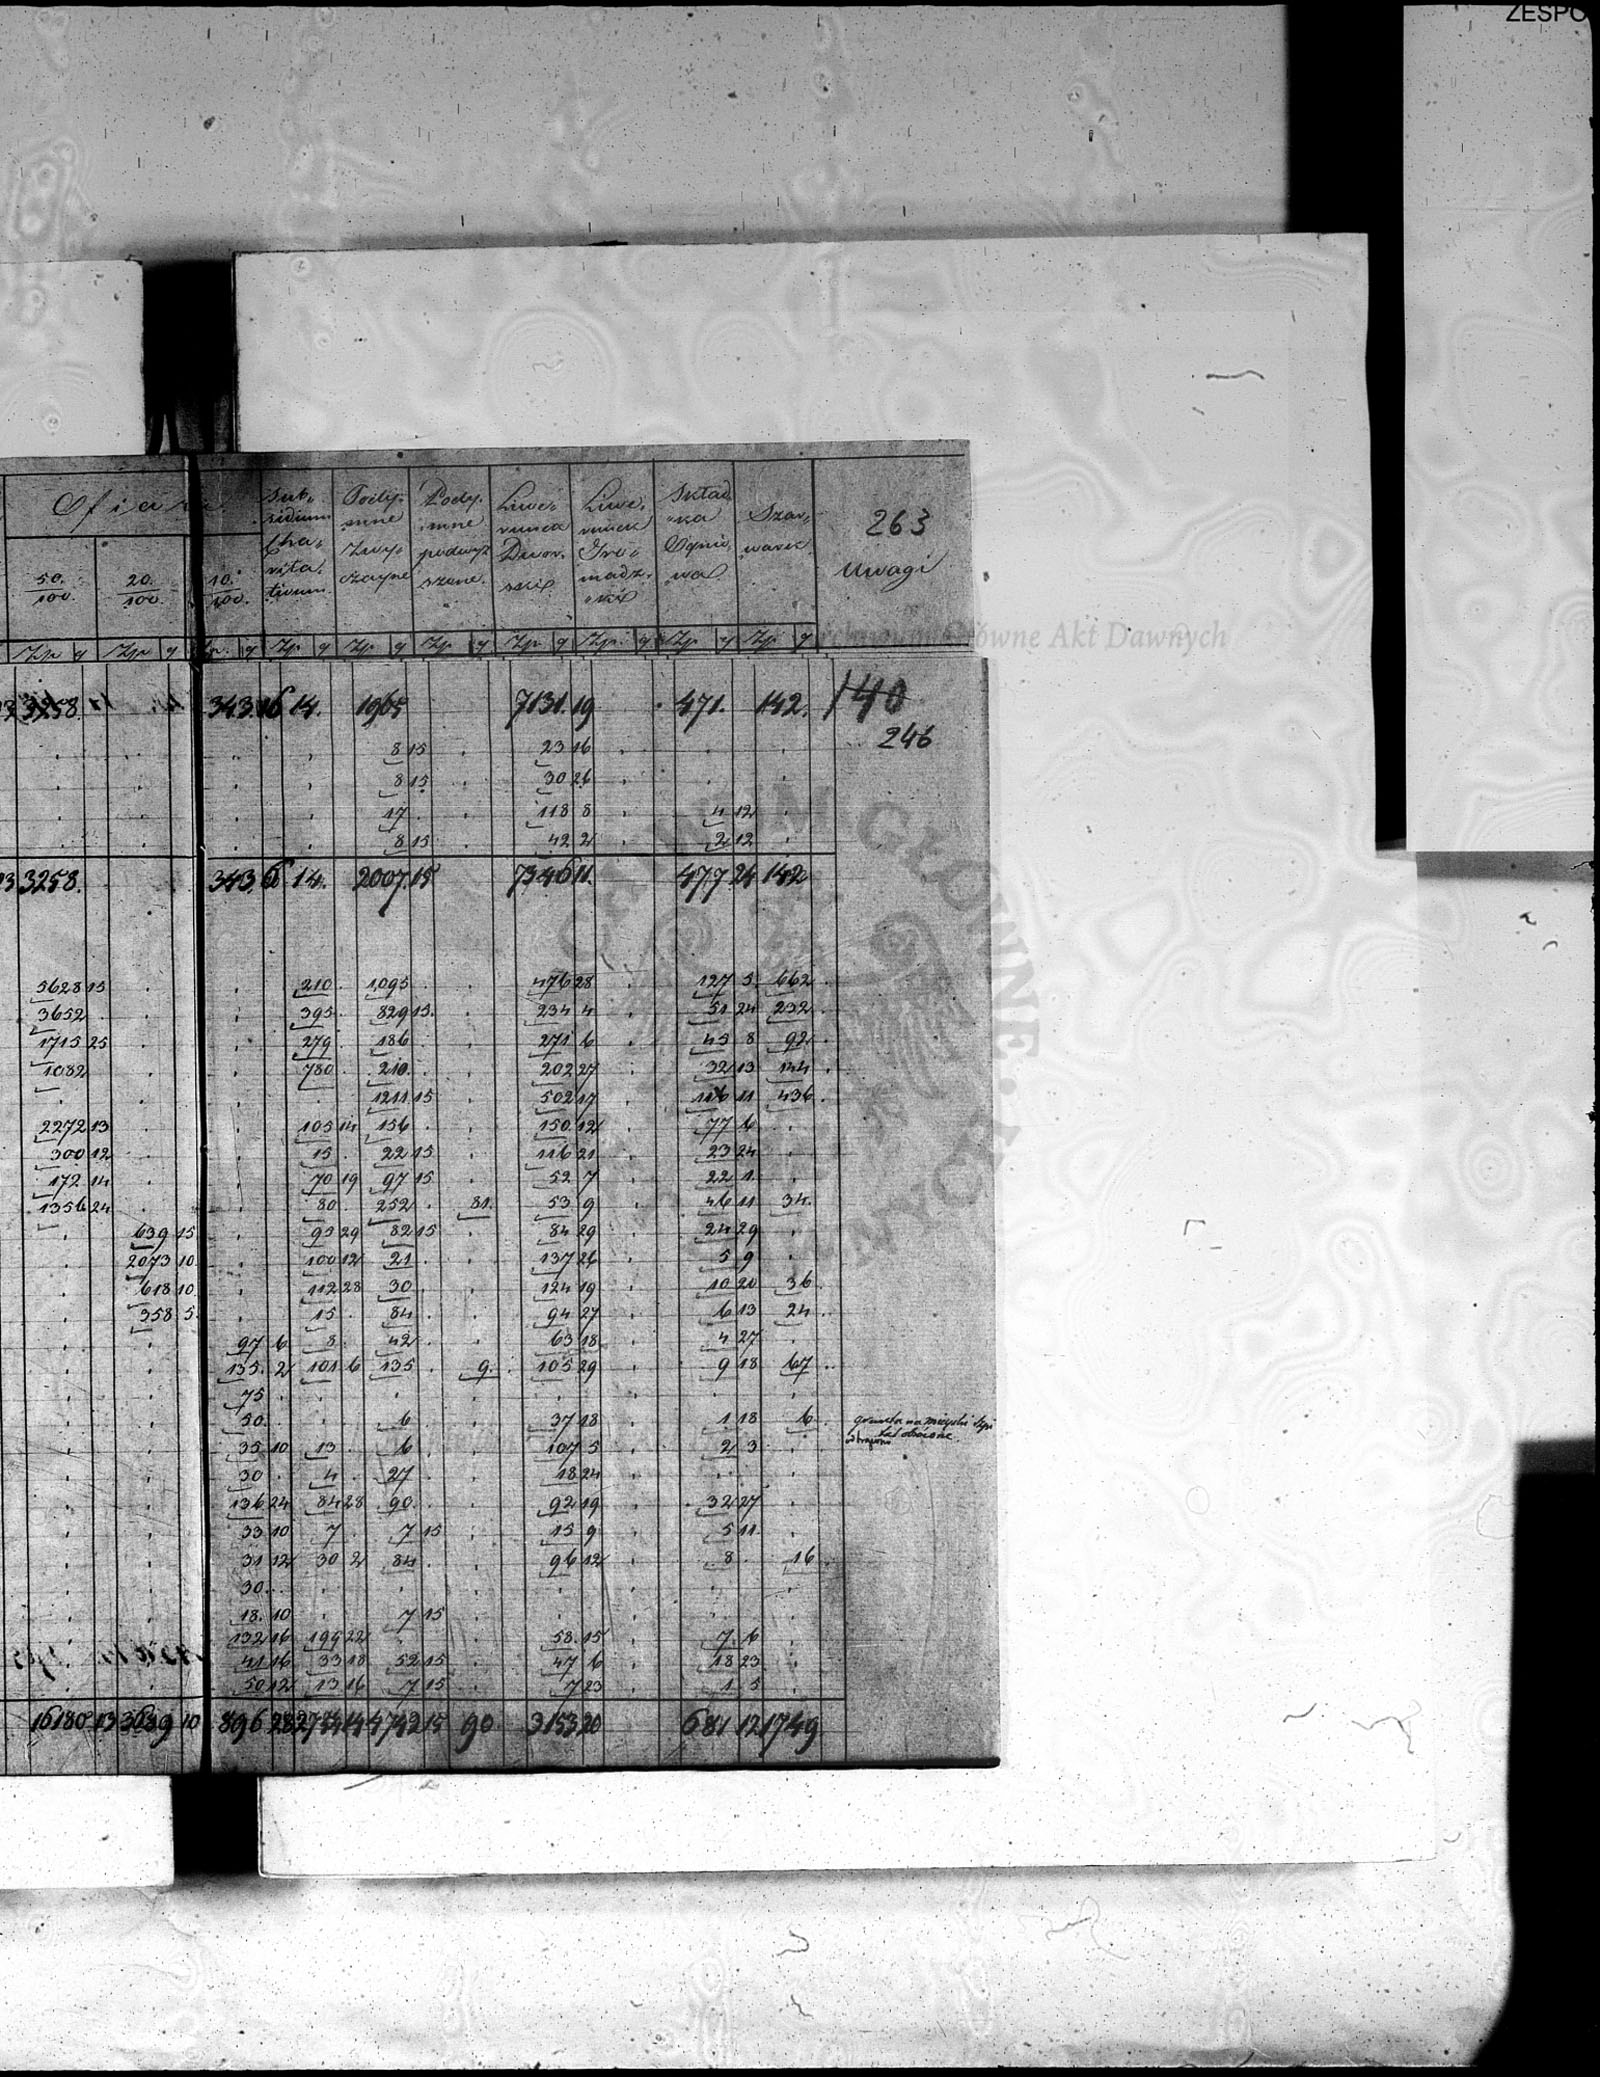 ZESPO
Ofiara
Sub-
sidium
Cha-
rita-
tivum
Podym-
mne
Zwy-
czayne
Pody-
mne
podwyż
szone
Liwe-
runek
Dwor-
ski
Liwe-
runek
Gro-
madz-
ki
Skład
ka
Ognio
wa
Szar-
wark
263
Uwagi
50. 20. 10.
100. 100. 100.
Zp g Zp g Zp g Zp g Zp g Zp g Zp g Zp g Zp g Zp g
Archiwum Główne Akt Dawnych
3258 343 16 14. 1965 7131. 19 471. 142. 140
246
8 15 23 16
8 15 30 26
17 118 8 4 12
8 15 42 2 2 12
3258. 343. 6 14. 2007. 15 7346 11. 477 24 142
5628 15 210 1095 476 28 127 5 662
3652 395 829 15 234 4 51 24 232
1715 25 279 186 271 6 45 8 92
1082 780 210 202 27 32 13 144
1211 15 502 17 116 11 436
2272 13 105 14 156 150 12 77 6
300 12 15 22 15 116 21 23 24
172 14 70 19 97 15 52 7 22 1
1356 24 80 252 81 53 9 46 11 34
639 15 95 29 82 15 84 29 24 29
2073 10 100 12 21 137 26 5 9
618 10 112 28 30 124 19 10 20 36
358 5 15 84 94 27 6 13 24
97 6 8 42 63 18 4 27
135 2 101 6 135 9 105 29 9 18 67
75
50 6 37 18 1 18 6
35 10 13 6 107 5 2 3
30 4 27 18 24
136 24 84 28 90 92 19 32 27
33 10 7 7 15 15 9 5 11
31 12 30 2 84 96 12 8 16
30
18 10 7 15
132 16 199 22 58 15 7 6
41 16 33 18 52 15 47 6 18 23
50 12 13 16 7 15 7 23 1 5
16180 13 3689 10 896 28 2754 14 4742 15 90 3153 20 681 12 1749